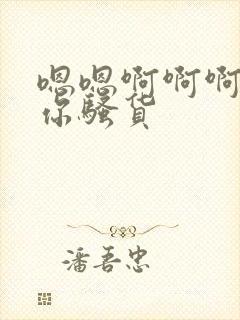 嗯嗯啊啊啊
你骚货
潘吾忠